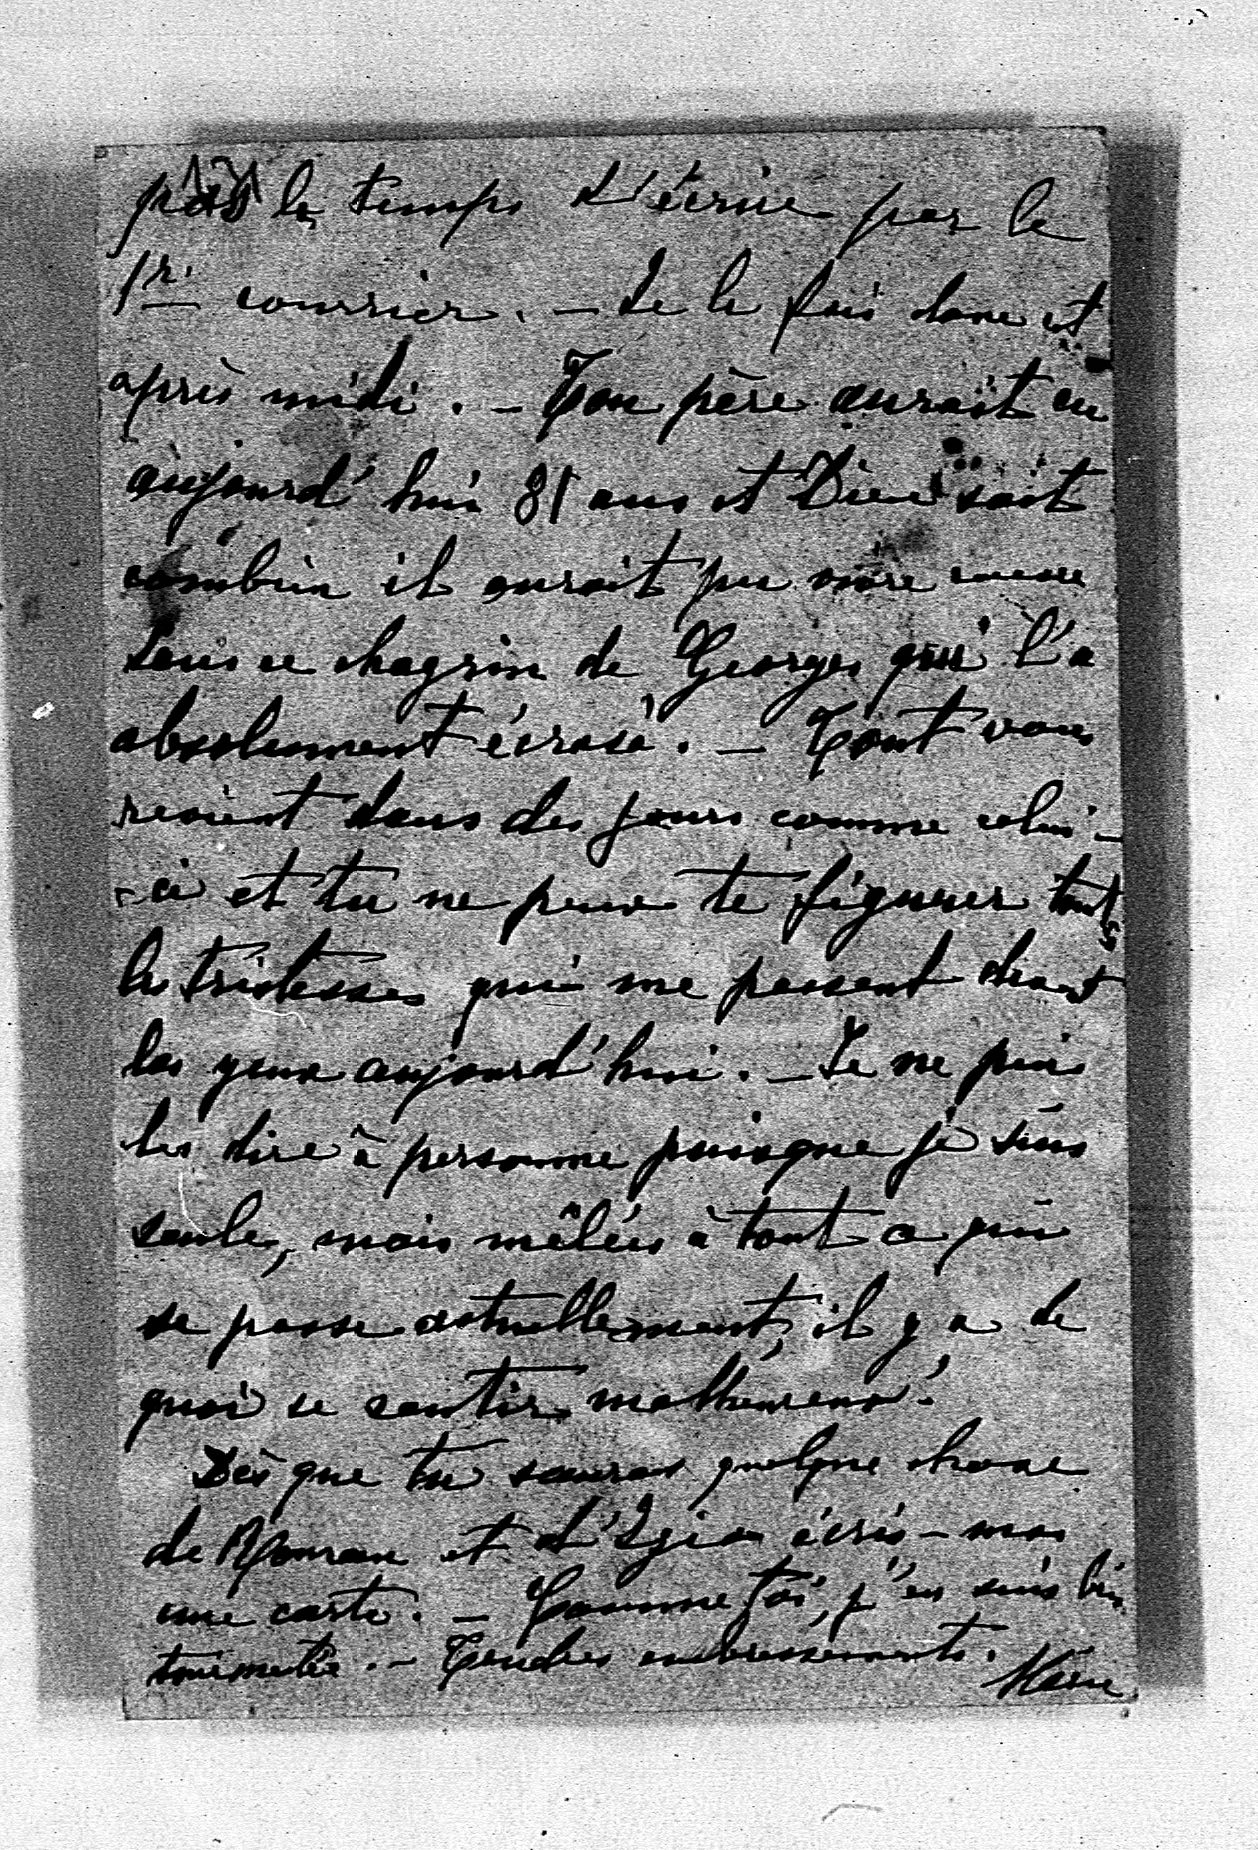 pas le temps d'écrire par le
1er courrier. — Je le fais donc cet
après midi. — Ton père aurait eu
aujourd'hui 81 ans et Dieu sait
combien il aurait pu vivre encore
sans ce chagrin de Georges qui l'a
absolument écrasé. — Tout vous
revient dans des jours comme celui-
-ci et tu ne peux te figurer toutes
les tristesses qui me passent devant
les yeux aujourd'hui. — Je ne puis
les dire à personne puisque je suis
seule, mais mêlées à tout ce qui
se passe actuellement, il y a de
quoi se sentir malheureux.
Dès que tu sauras quelque chose
de et écris-moi
une carte. — Comme toi, j'en suis bien
tourmentée. — Tendres embrassements.